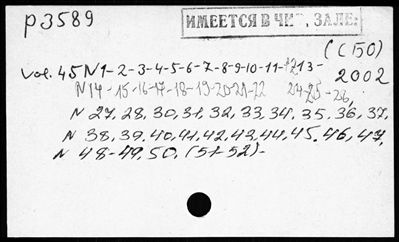 р3589
ИМЕЕТСЯ В ЧИТ. ЗАЛЕ
(СБО)
Vol. 45 N 1-2-3-4-5-6-7-8-9-10-11-12 13-
2002
N 14-15-16-17-18-19-20-21-22 24-25-26,
N 27, 28, 30, 31, 32, 33, 34, 35, 36, 37,
N 38, 39, 40, 41, 42, 43, 44, 45, 46, 47,
N 48-49, 50, (51-52)-